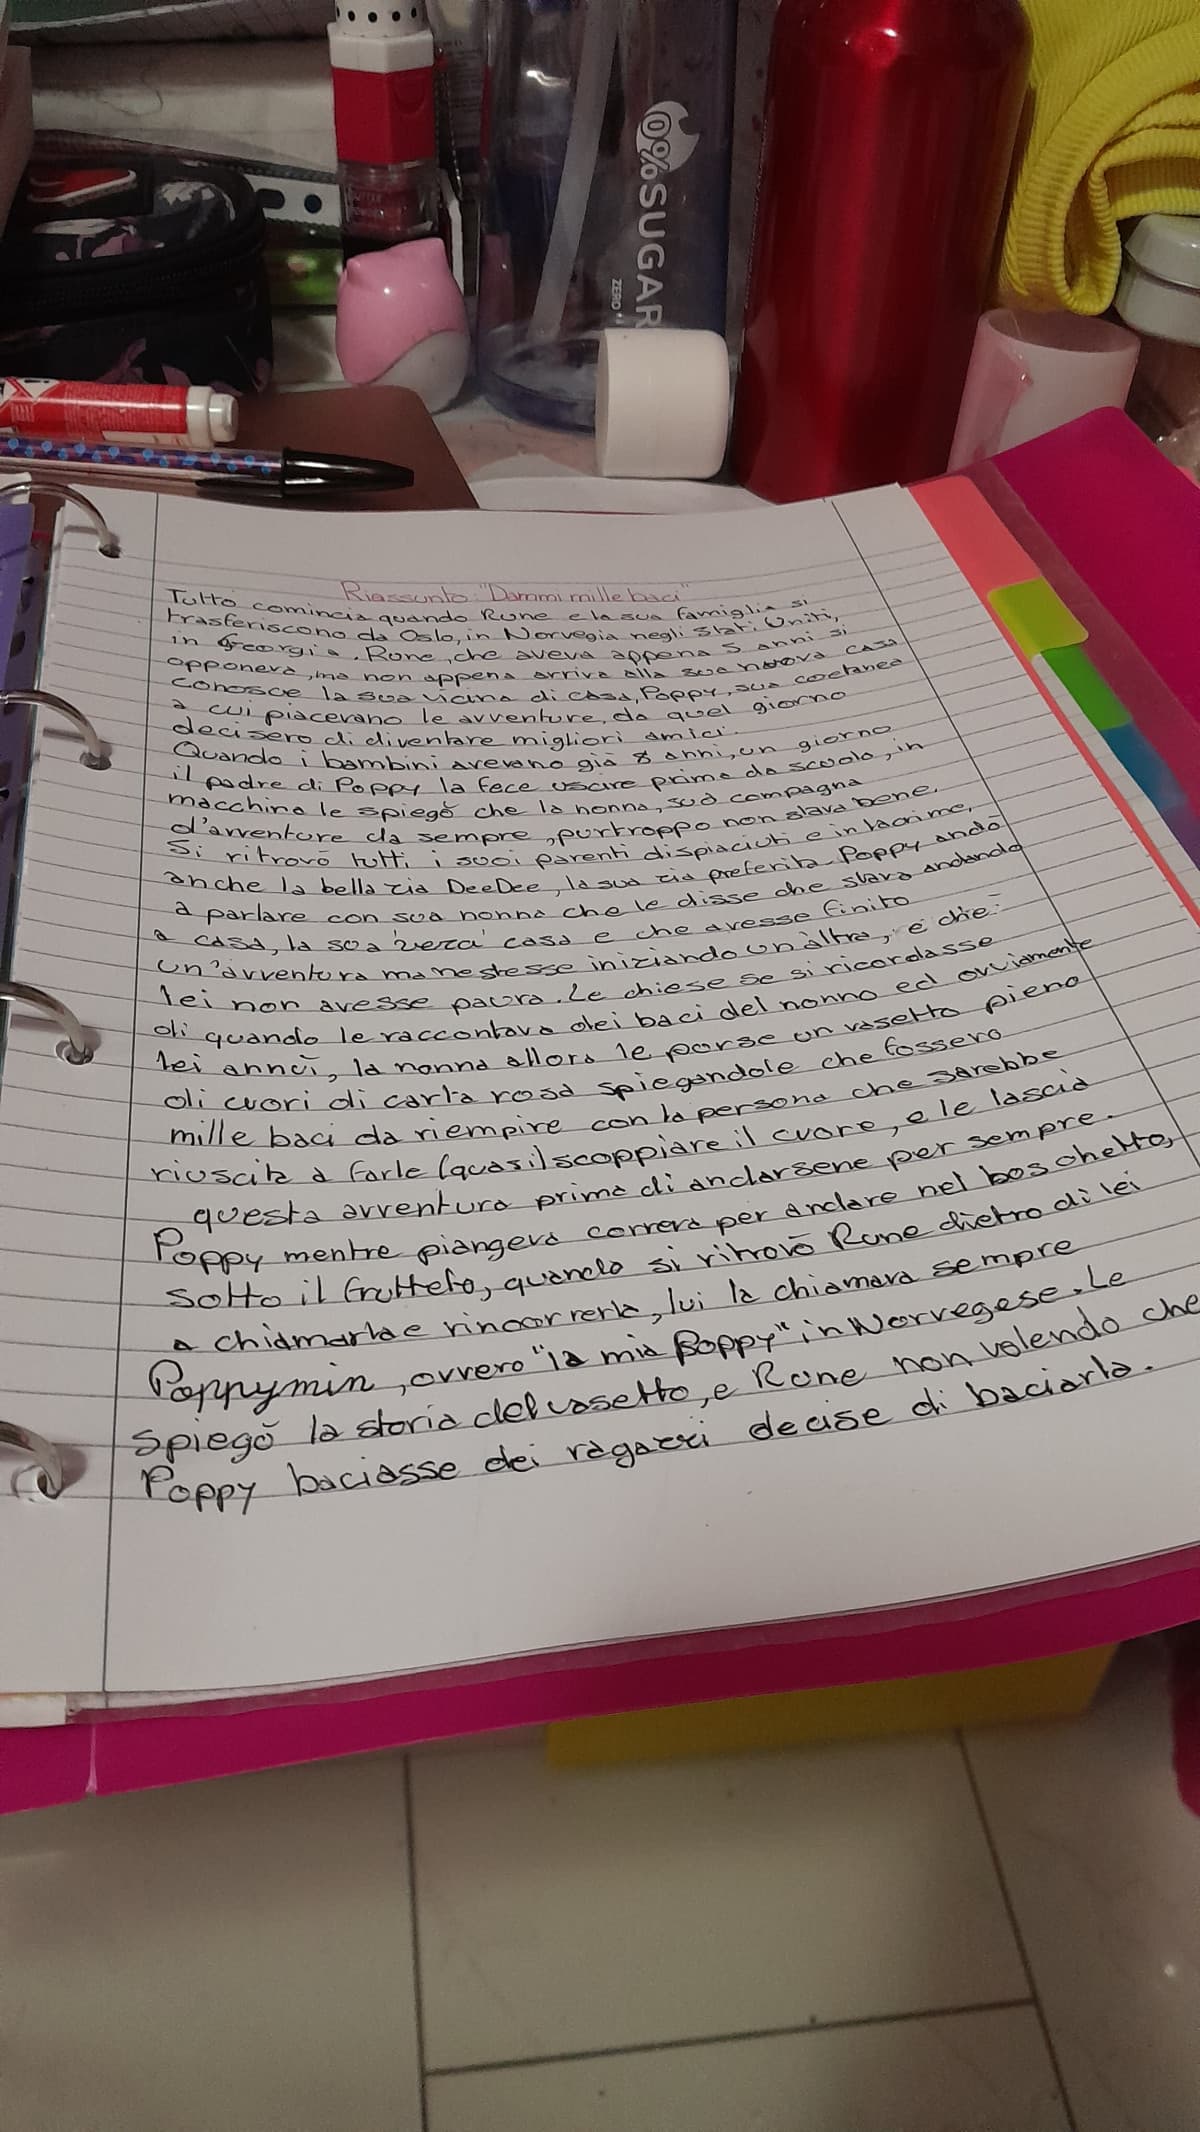 @%SUGAR
ZERO
Riassunto: "Dammi mille baci"
Tutto comincia quando Rune e la sua famiglia si
trasferiscono da Oslo, in Norvegia negli Stati Uniti,
in Georgia. Rune, che aveva appena 5 anni si
opponeva, ma non appena arriva alla sua nuova casa
conosce la sua vicina di casa, Poppy, sua coetanea
a cui piacevano le avventure, da quel giorno
decisero di diventare migliori amici.
Quando i bambini avevano già 8 anni, un giorno
il padre di Poppy la fece uscire prima da scuola, in
macchina le spiegò che la nonna, sua compagna
d'avventure da sempre, purtroppo non stava bene.
Si ritrovò tutti i suoi parenti dispiaciuti e in lacrime,
anche la bella zia DeeDee, la sua zia preferita. Poppy andò
a parlare con sua nonna che le disse che stava andando
a casa, la sua 'vera' casa e che avesse finito
un'avventura ma ne stesse iniziando un'altra, e che
lei non avesse paura. Le chiese se si ricordasse
di quando le raccontava dei baci del nonno ed ovviamente
lei annuì, la nonna allora le porse un vasetto pieno
di cuori di carta rosa spiegandole che fossero
mille baci da riempire con la persona che sarebbe
riuscita a farle (quasi) scoppiare il cuore, e le lascia
questa avventura prima di andarsene per sempre.
Poppy mentre piangeva correva per andare nel boschetto,
sotto il frutteto, quando si ritrovò Rune dietro di lei
a chiamarla e rincorrerla, lui la chiamava sempre
Poppymin, ovvero "la mia Poppy" in Norvegese. Le
spiegò la storia del vasetto, e Rune non volendo che
Poppy baciasse dei ragazzi decise di baciarla.